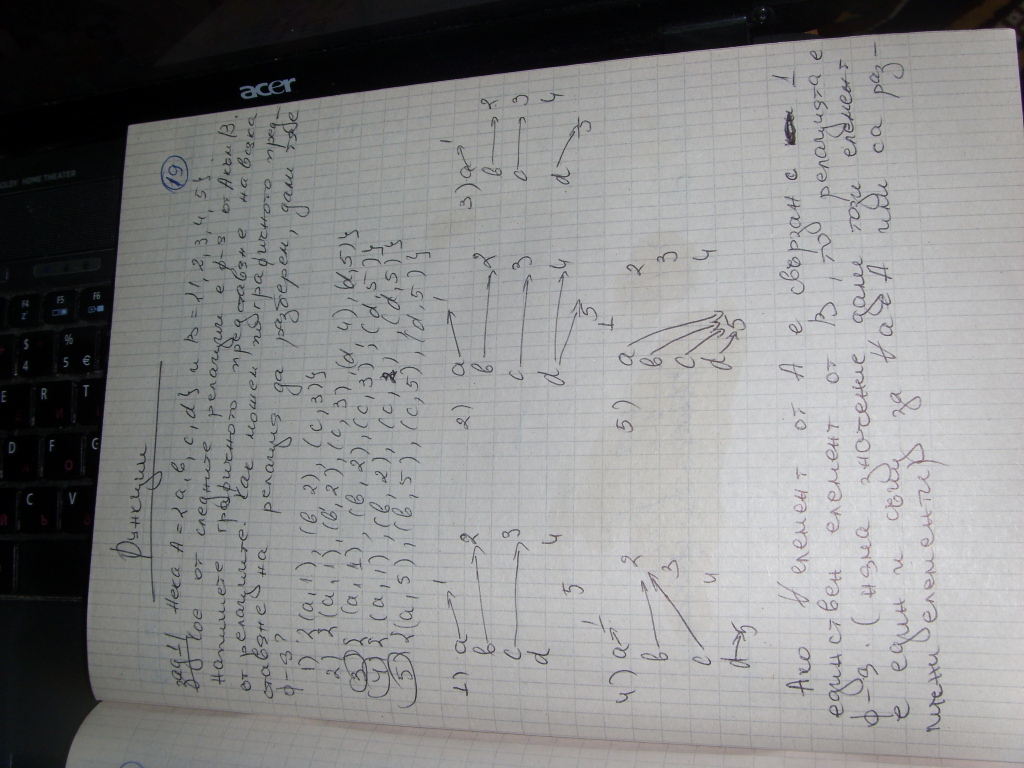 19
Функции
зад 1 Нека A = {a, b, c, d} и B = {1, 2, 3, 4, 5}
Кое от следните релации е ф-я от A към B.
Напишете графичното представяне на всяка
от релациите. Как можем по графичното пред-
ставяне на релация да разберем, дали тя е
ф-я?
1) {(a,1), (b,2), (c,3)}
2) {(a,1), (b,2), (c,3), (d,4), (d,5)}
3) {(a,1), (b,2), (c,3), (d,5)}
4) {(a,1), (b,2), (c,2), (d,5)}
5) {(a,5), (b,5), (c,5), (d,5)}
1) a 1
b 2
c 3
d 4
5
2) a 1
b 2
c 3
d 4
5
3) a 1
b 2
c 3
d 4
5
4) a 1
b 2
c 3
d 4
5
5) a
b 2
c 3
d 4
5
1
Ако ∀ елемент от A е свързан с 1
единствен елемент от B, то релацията е
ф-я. (няма значение дали този елемент
е един и същ за ∀ a ∈ A или са раз-
лични елементи)
acer
DOLBY HOME THEATER
F4
F5
F6
$
4
%
5
€
E
R
T
D
F
G
C
V